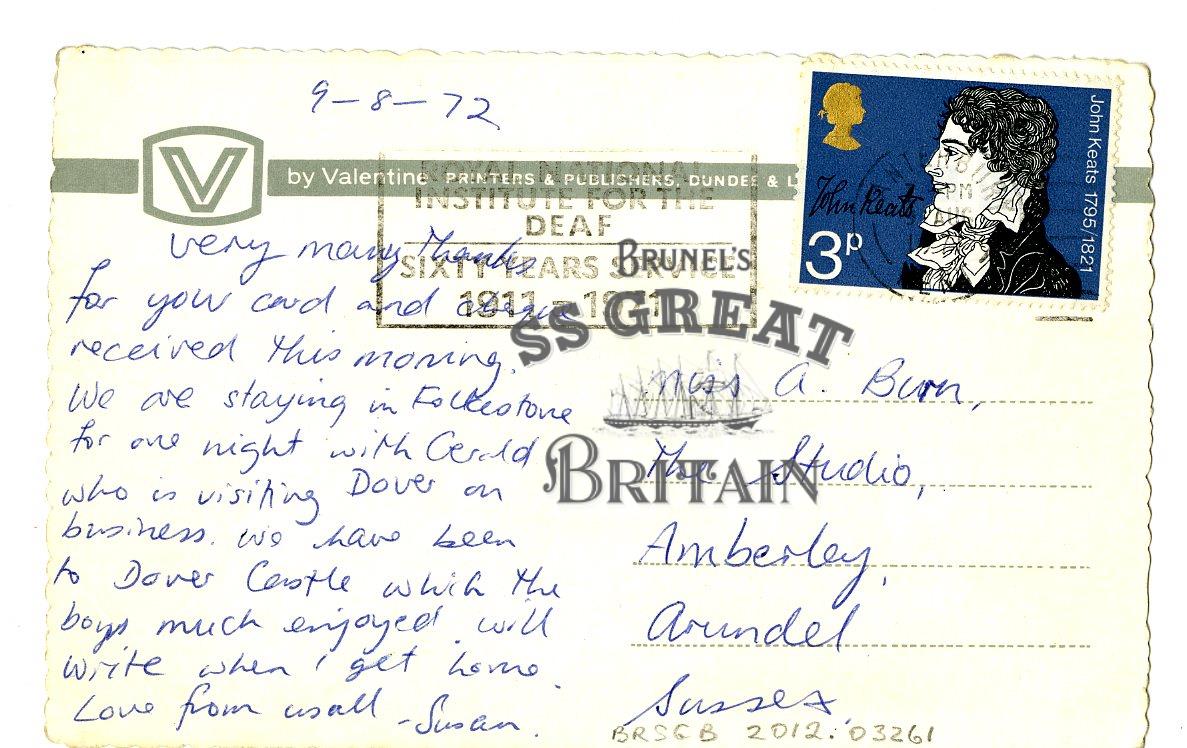 9-8-72
V
by Valentine PRINTERS & PUBLISHERS, DUNDEE & L
ROYAL NATIONAL
INSTITUTE FOR THE
DEAF
SIXTY YEARS SERVICE
1911-1971
John Keats 1795/1821
John Keats
3p
PM
AUG
very many Thanks
for your card and cheque
received this morning.
We are staying in Folkestone
for one night with Gerald
who is visiting Dover on
business. we have been
to Dover Castle which the
boys much enjoyed. will
write when I get home.
Love from us all - Susan.
BRUNEL'S
SS GREAT
BRITAIN
miss A. Burn,
The Studio,
Amberley,
Arundel
Sussex.
BRSGB 2012.03261